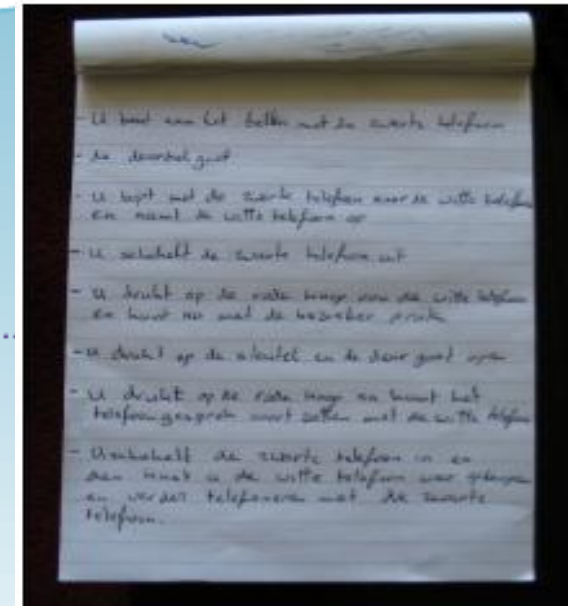 - U bent aan het bellen met de zwarte telefoon
- de deurbel gaat
- U loopt met de zwarte telefoon naar de witte telefoon
en neemt de witte telefoon op
- U schakelt de zwarte telefoon uit
- U drukt op de rode knop van de witte telefoon
en kunt nu met de bezoeker
- U drukt op de sleutel en de deur gaat open
- U drukt op de rode knop en kunt het
telefoongesprek voort zetten met de witte telefoon
- U schakelt de zwarte telefoon in en
dan kunt u de witte telefoon weer
en verder telefoneren met de zwarte
telefoon.